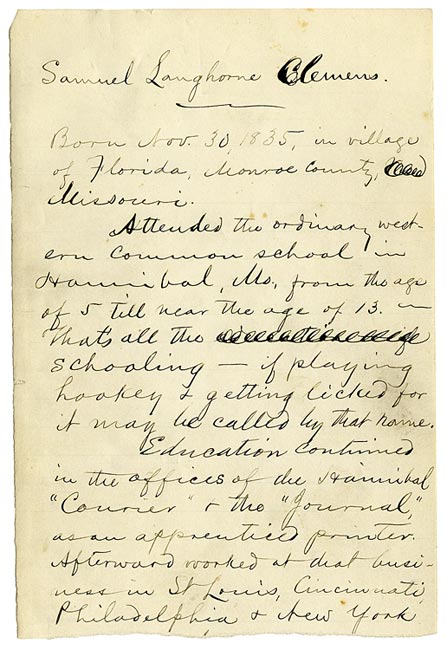 Samuel Langhorne Clemens.
Born Nov. 30, 1835, in village
of Florida, Monroe County,
Missouri.
Attended the ordinary west-
ern common school in
Hannibal, Mo., from the age
of 5 till near the age of 13. —
That's all the
schooling — if playing
hookey & getting licked for
it may be called by that name.
Education continued
in the offices of the Hannibal
"Courier" & the "Journal",
as an apprenticed printer.
Afterward worked at that busi-
ness in St Louis, Cincinnati,
Philadelphia & New York